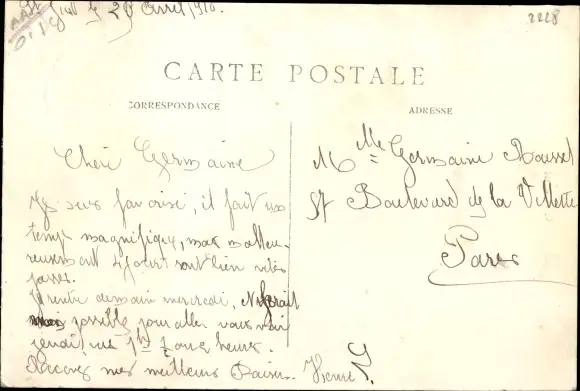 28 Avril 1910.
2228
CARTE POSTALE
CORRESPONDANCE
ADRESSE
Chère Germaine
Je suis favorisé, il fait un
temps magnifique, mais malheu-
reusement 4 jours sont bien vite
passés.
Je rentre demain mercredi,
possible pour aller vous voir
jeudi, vers heures.
Recevez mes meilleurs baisers.
Mlle Germaine Roussel
57 Boulevard de la Villette
Paris